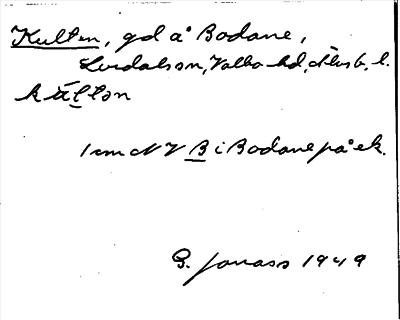 Kulten, gd å Bodane,
Lerdalssn, Valbo hd, Älvsb. l.
kälton
1 cm NV B i Bodane på ek.
G. Jonass 1949